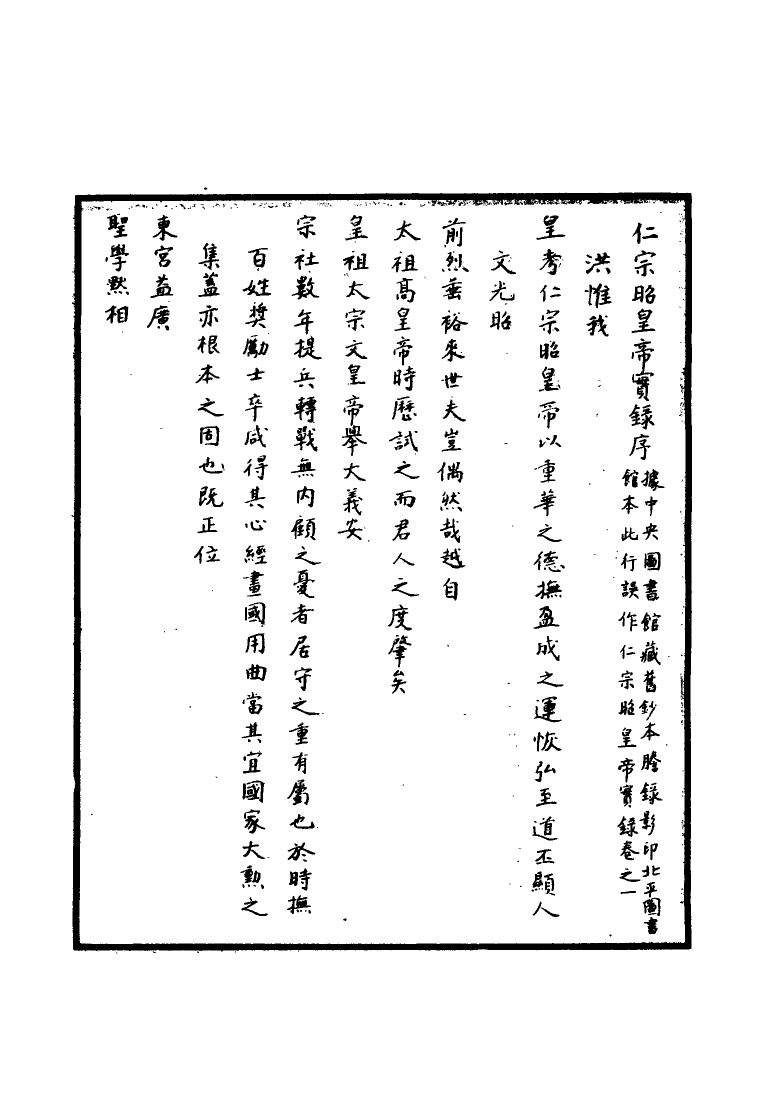 仁宗昭皇帝實錄序
據中央圖書館藏舊鈔本謄錄影印北平圖書
館本此行誤作仁宗昭皇帝實錄卷之一
洪惟我
皇考仁宗昭皇帝以重華之德撫盈成之運恢弘至道丕顯人
文光昭
前烈垂裕來世夫豈偶然哉越自
太祖高皇帝時歷試之而君人之度肇矣
皇祖太宗文皇帝舉大義安
宗社數年提兵轉戰無内顧之憂者居守之重有屬也於時撫
百姓奬勵士卒咸得其心經畫國用曲當其宜國家大勲之
集蓋亦根本之固也既正位
東宮益廣
聖學黙相